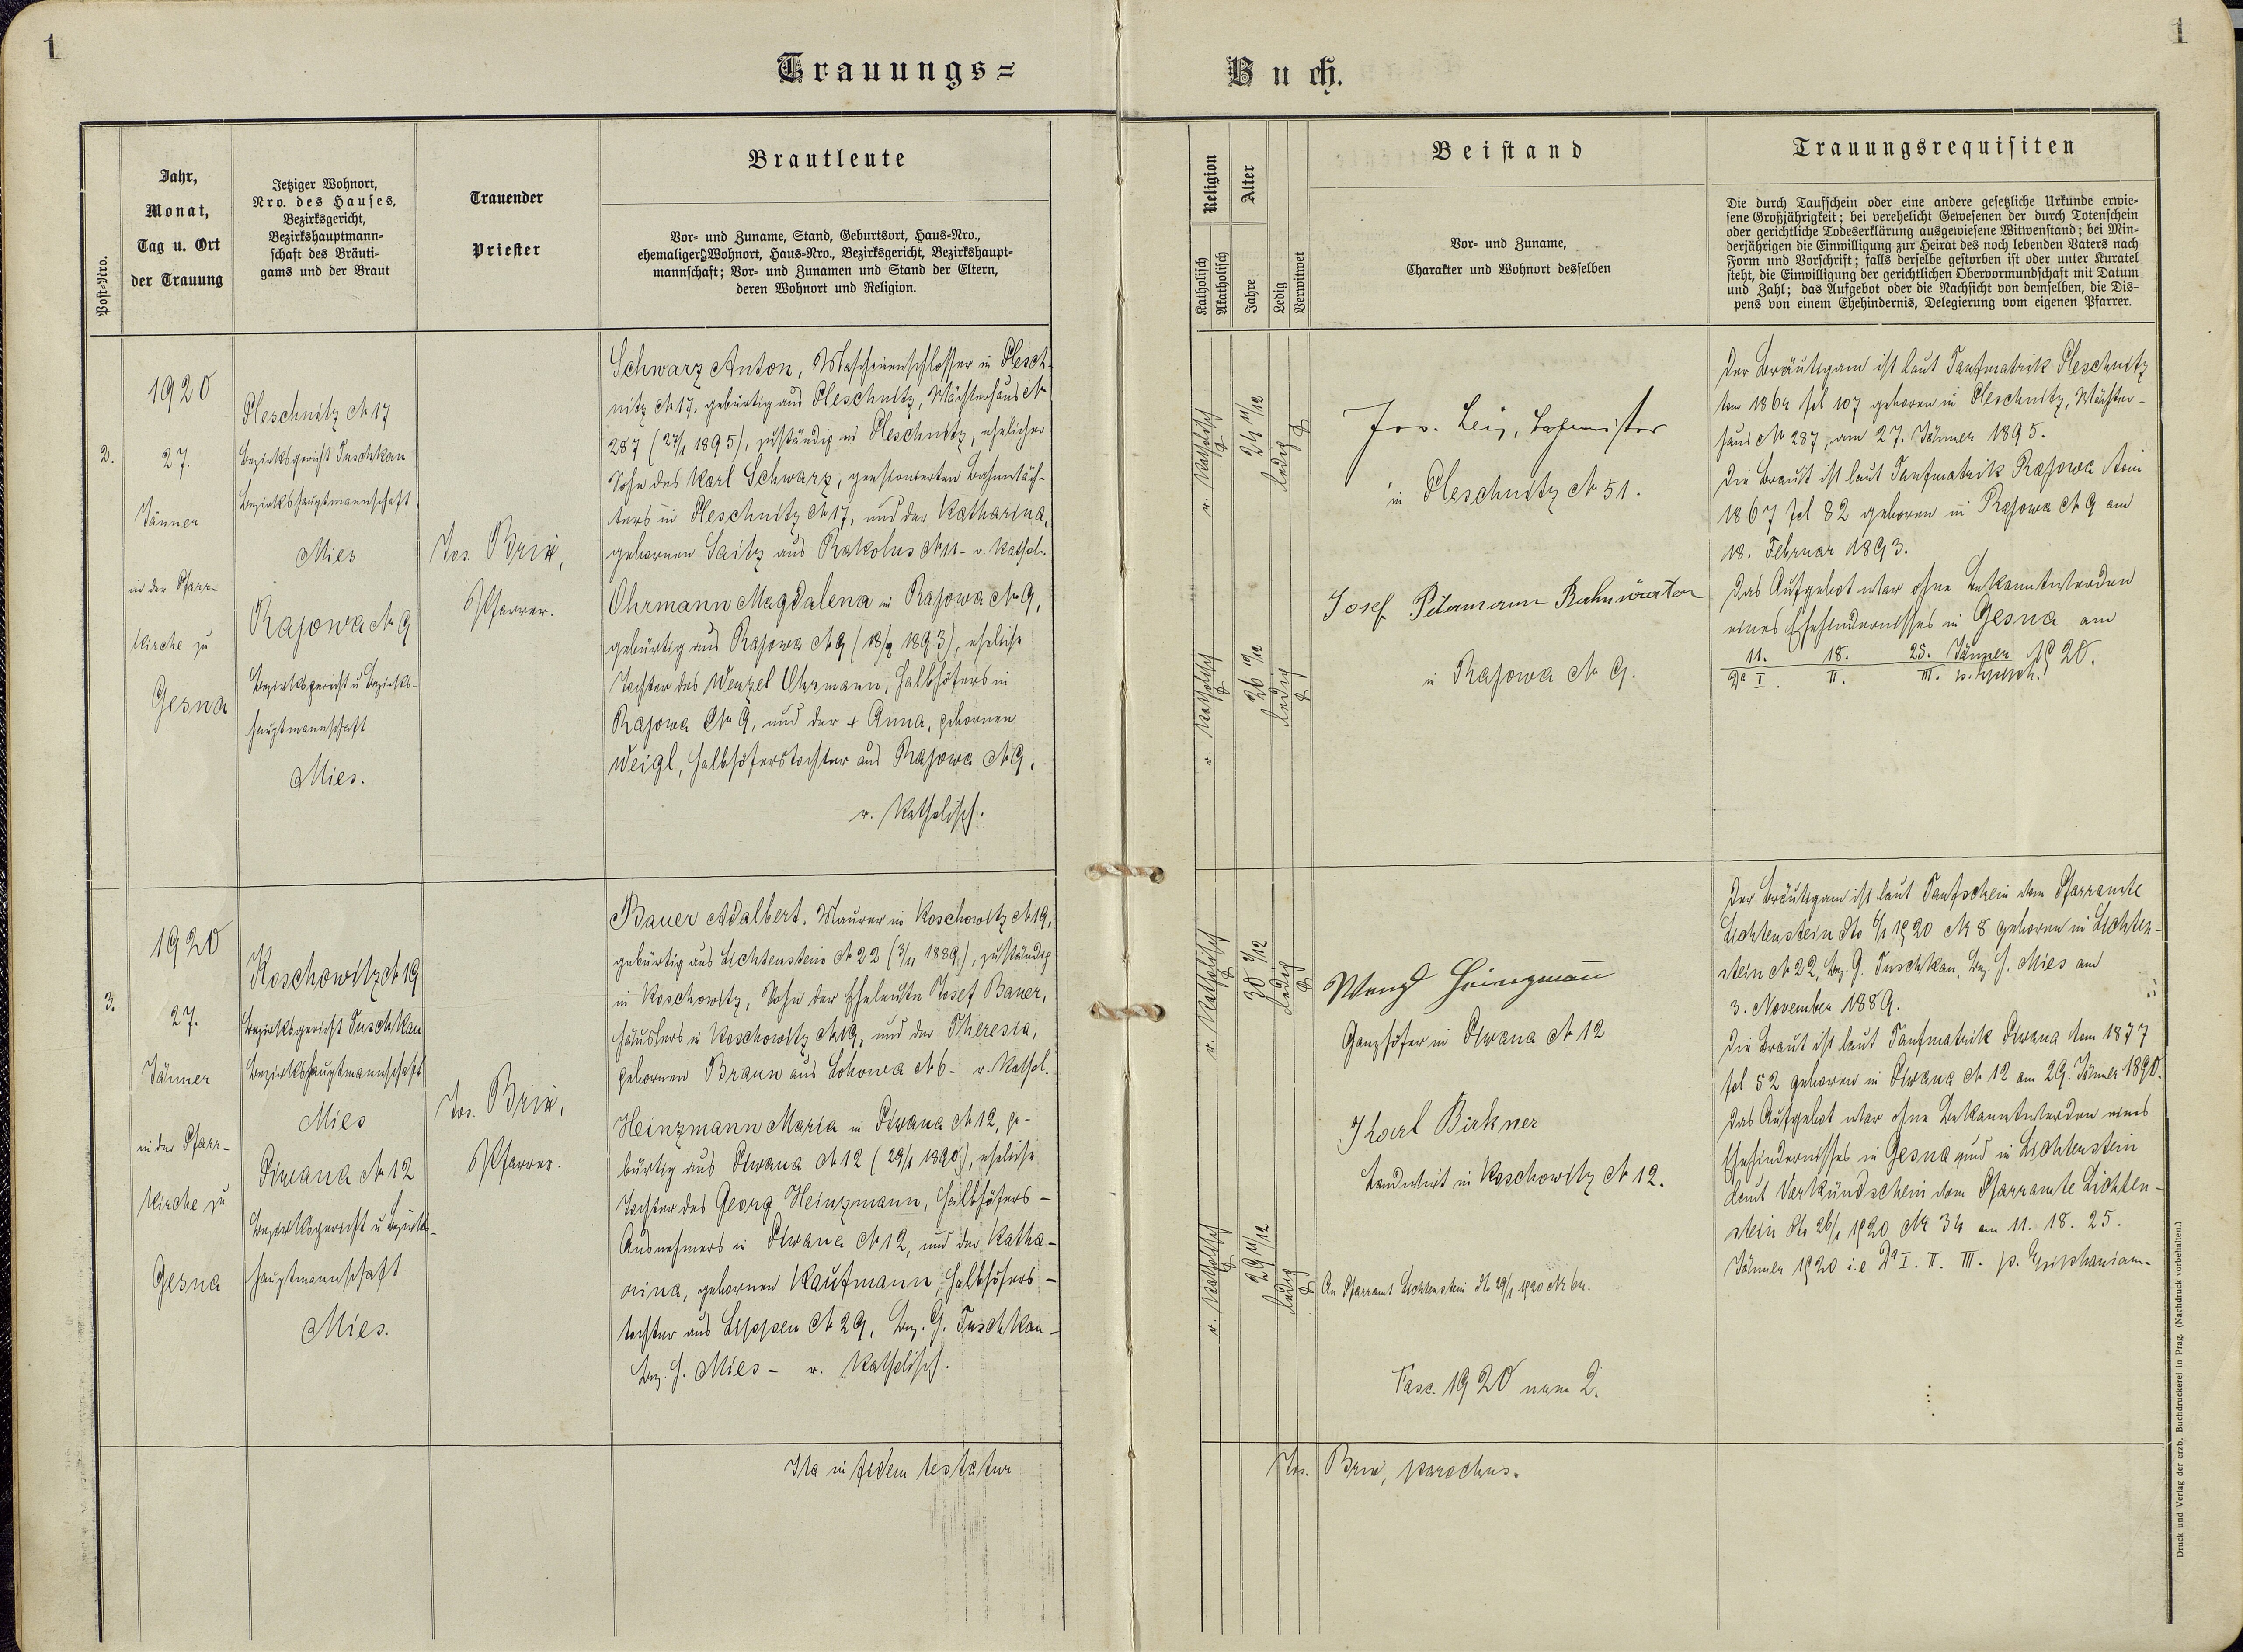 1
1
Trauungs=
Buch.
Post-Nro.
Jahr,
Monat,
Tag u. Ort
der Trauung
Jetziger Wohnort,
Nro. des Hauses,
Bezirksgericht,
Bezirkshauptmann-
schaft des Bräuti-
gams und der Braut
Trauender
Priester
Brautleute
Vor- und Zuname, Stand, Geburtsort, Haus-Nro.,
ehemaliger Wohnort, Haus-Nro., Bezirksgericht, Bezirkshaupt-
mannschaft; Vor- und Zunamen und Stand der Eltern,
deren Wohnort und Religion.
Religion
Katholisch
Akatholisch
Alter
Jahre
Ledig
Verwitwet
Beistand
Vor- und Zuname,
Charakter und Wohnort desselben
Trauungsrequisiten
Die durch Taufschein oder eine andere gesetzliche Urkunde erwie-
sene Großjährigkeit; bei verehelicht Gewesenen der durch Totenschein
oder gerichtliche Todeserklärung ausgewiesene Witwenstand; bei Min-
derjährigen die Einwilligung zur Heirat des noch lebenden Vaters nach
Form und Vorschrift; falls derselbe gestorben ist oder unter Kuratel
steht, die Einwilligung der gerichtlichen Obervormundschaft mit Datum
und Zahl; das Aufgebot oder die Nachsicht von demselben, die Dis-
pens von einem Ehehindernis, Delegierung vom eigenen Pfarrer.
2.
1920
27.
Jänner
in der Pfarr-
kirche zu
Gesna
Pleschnitz N 17
Bezirksgericht Tuschkau
Bezirkshauptmannschaft
Mies
Rajowa N 9
Bezirksgericht u Bezirks-
hauptmannschaft
Mies.
Jos. Brix,
Pfarrer.
Schwarz Anton, Maschinenschlosser in Plesch-
nitz N 17, gebürtig aus Pleschnitz, Wächterhaus N
287 (27/1 1895), zuständig in Pleschnitz, ehelicher
Sohn des Karl Schwarz, pensionierten Bahnwäch-
ters in Pleschnitz N 17, und der Katharina,
gebornen Saitz aus Rakolus N 11 - r. kathol.
Ohrmann Magdalena in Rajowa N 9,
gebürtig aus Rajowa N 9 (18/2 1893), eheliche
Tochter des Wenzel Ohrmann, Halbhöfers in
Rajowa N 9, und der + Anna, gebornen
Weigl, Halbhöferstochter aus Rajowa N 9.
r. katholisch.
r. katholisch
24 11/12
ledig
r. katholisch
26 11/12
ledig
Jos. , 
in Pleschnitz N 51.
Josef Petermann Bahnwärter
in Rajowa N 9.
Der Bräutigam ist laut Taufmatrik Pleschnitz
tom 1864 fol 107 geboren in Pleschnitz, Wächter-
haus N 287, am 27. Jänner 1895.
Die Braut ist laut Taufmatrik Rajowa tom
1867 fol 82 geboren in Rajowa N 9 am
18. Februar 1893.
Das Aufgebot war ohne Bekanntwerden
eines Ehehindernisses in Gesna am
11. 18. 25. Jänner 1920.
Da I. II. III. p. Epiph.
3.
1920
27.
Jänner
in der Pfarr-
kirche zu
Gesna
Koschowitz N 19
Bezirksgericht Tuschkau
Bezirkshauptmannschaft
Mies
Piwana N 12
Bezirksgericht u Bezirks-
hauptmannschaft
Mies.
Jos. Brix,
Pfarrer.
Bauer Adalbert, Maurer in Koschowitz N 19,
gebürtig aus Lichtenstein N 22 (3/11 1889), zuständig
in Koschowitz, Sohn der Eheleute Josef Bauer,
Häuslers in Koschowitz N 19, und der Theresia,
gebornen Braun aus Lohowa N 6 - r. kathol.
Heinzmann Maria in Piwana N 12, ge-
bürtig aus Piwana N 12 (29/1 1890), eheliche
Tochter des Georg Heinzmann, Halbhöfers-
Ausnehmers in Piwana N 12, und der Katha-
rina, gebornen Kaufmann, Halbhöfers-
tochter aus Lippen N 29, Bez. G. Tuschkau-
Bez. H. Mies - r. katholisch.
r. katholisch
30 2/12
ledig
r. katholisch
29 11/12
ledig
Wenzl Heinzmann
Ganzhöfer in Piwana N 12
Karl Birkner
Landwirt in Koschowitz N 12.
An Pfarramt Lichtenstein dto 29/1 1920 N 64.
Fasc. 1920 num 2.
Der Bräutigam ist laut Taufschein vom Pfarramte
Lichtenstein dto 6/1 1920 N 8 geboren in Lichten-
stein N 22, Bez. G. Tuschkau, Bez. H. Mies am
3. November 1889.
Die Braut ist laut Taufmatrik Piwana tom 1877
fol 52 geboren in Piwana N 12 am 29. Jänner 1890.
Das Aufgebot war ohne Bekanntwerden eines
Ehehindernisses in Gesna und in Lichtenstein
laut Verkündschein vom Pfarramte Lichten-
stein dto 26/1 1920 N 34 am 11. 18. 25.
Jänner 1920 i.e Da I. II. III. p. Epiphaniam.
Ita in fidem testatur
Jos. Brix, parochus.
Druck und Verlag der erzb. Buchdruckerei in Prag. (Nachdruck vorbehalten.)